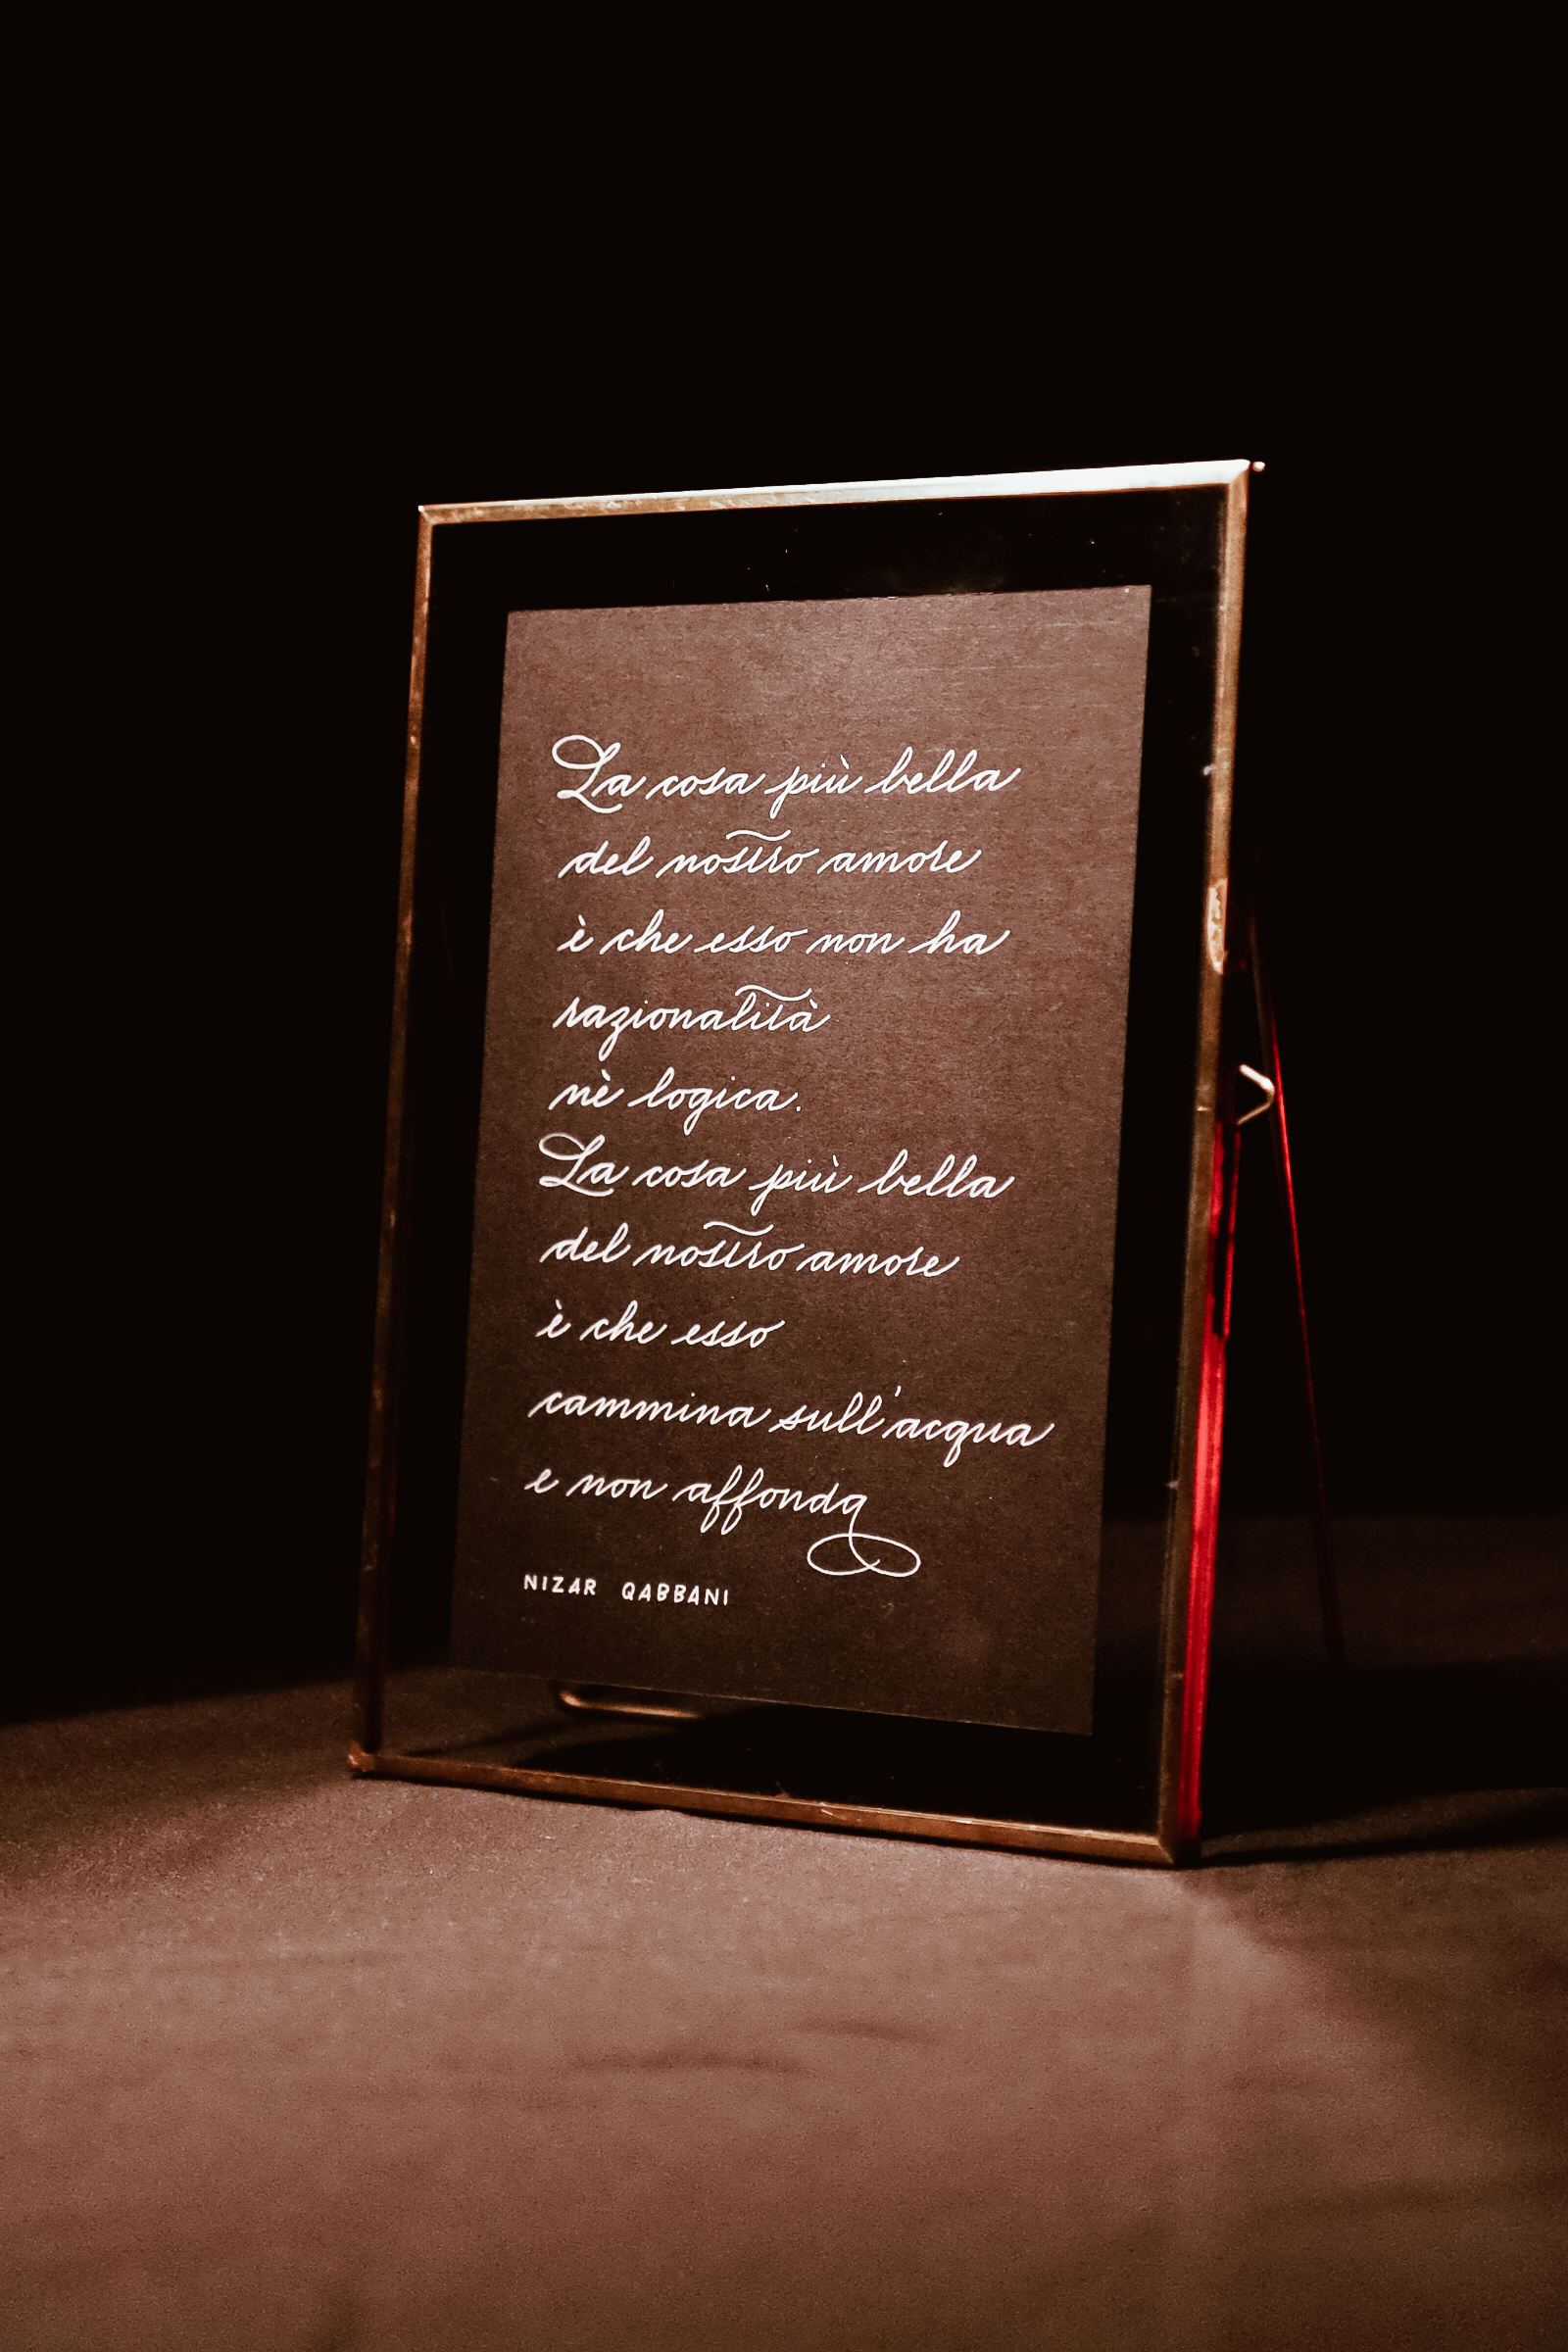 La cosa più bella
del nostro amore
è che esso non ha
razionalità
nè logica.
La cosa più bella
del nostro amore
è che esso
cammina sull'acqua
e non affonda
NIZAR QABBANI